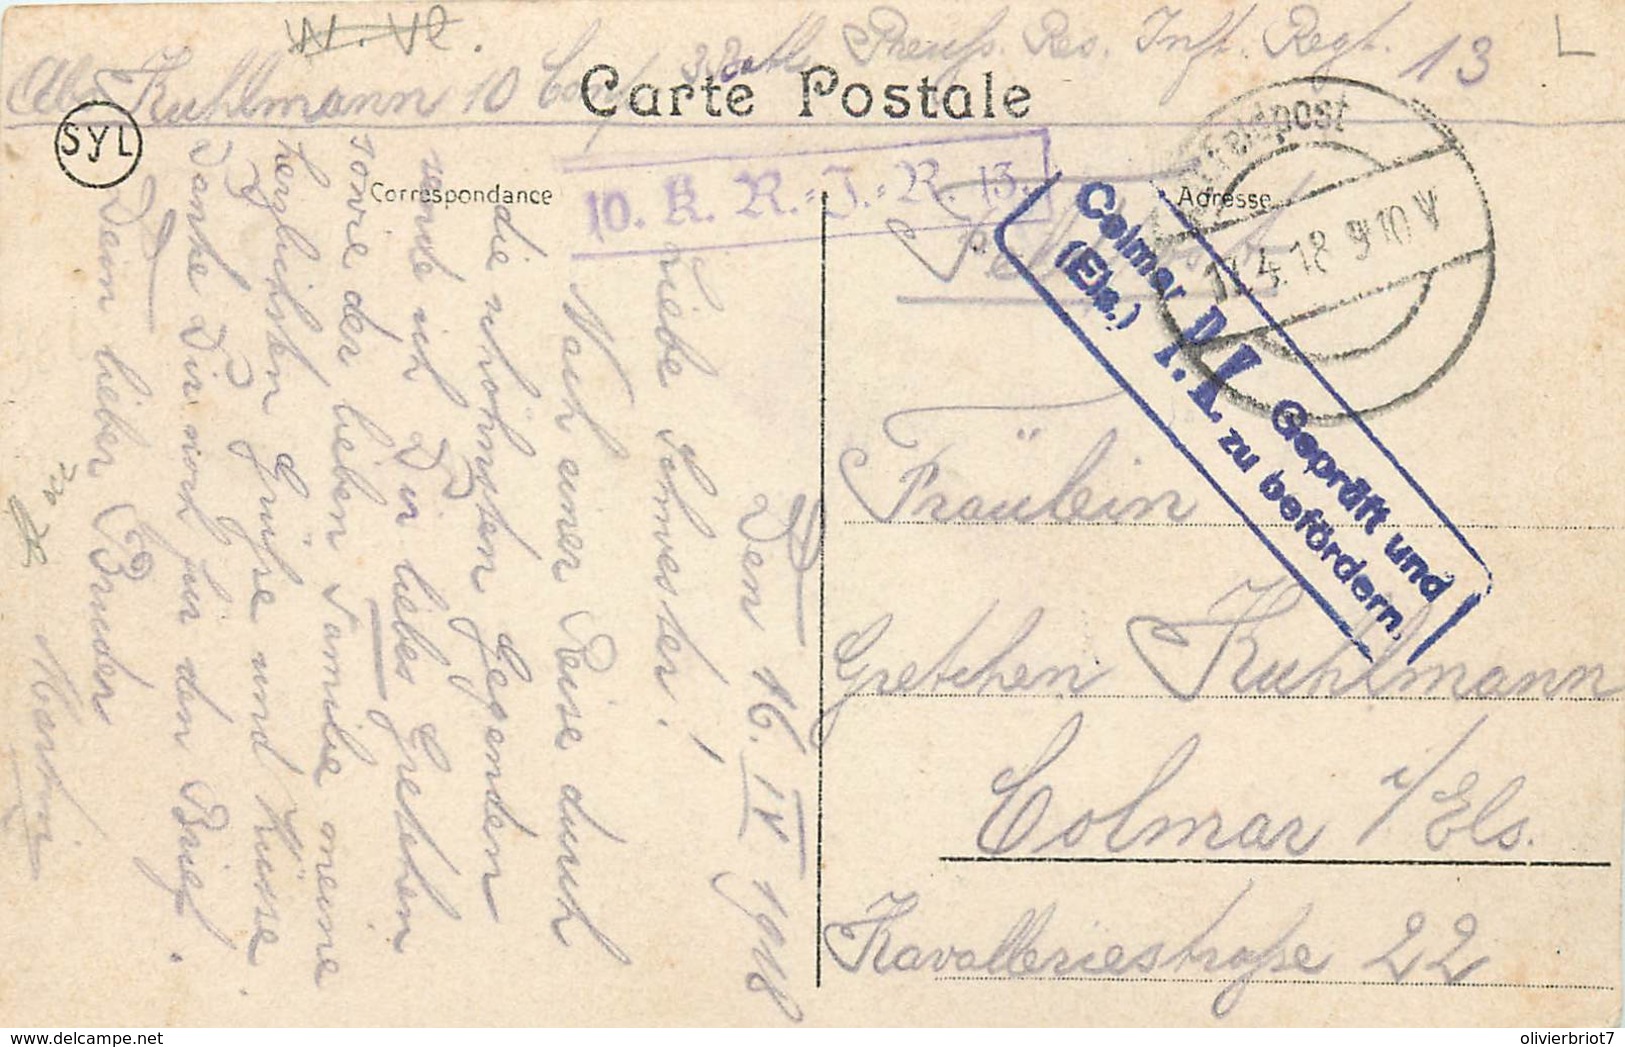 W. Vl.
Abs. Kuhlmann 10 Comp. 3 Batl. Preuss. Res. Inft. Regt. 13
Carte Postale
SyL
Correspondance
Adresse
10. K. R.-I.-R. 13.
Feldpost
17.4.18 9-10 V
Feldpost
Colmar
(Els.)
P.K.
Geprüft und
zu befördern.
Den 16. IV 1918
Liebe Schwester!
Nach einer Reise durch
die schönsten Gegenden
sende ich Dir liebes Gretchen
sowie der lieben Familie meine
herzlichsten Grüsse und Küsse
Danke Dir noch für den Brief.
Dein lieber Bruder
Martin
Fräulein
Gretchen Kuhlmann
Colmar i/Els.
Kavalleriestraße 22
delcampe.net
olivierbriot7